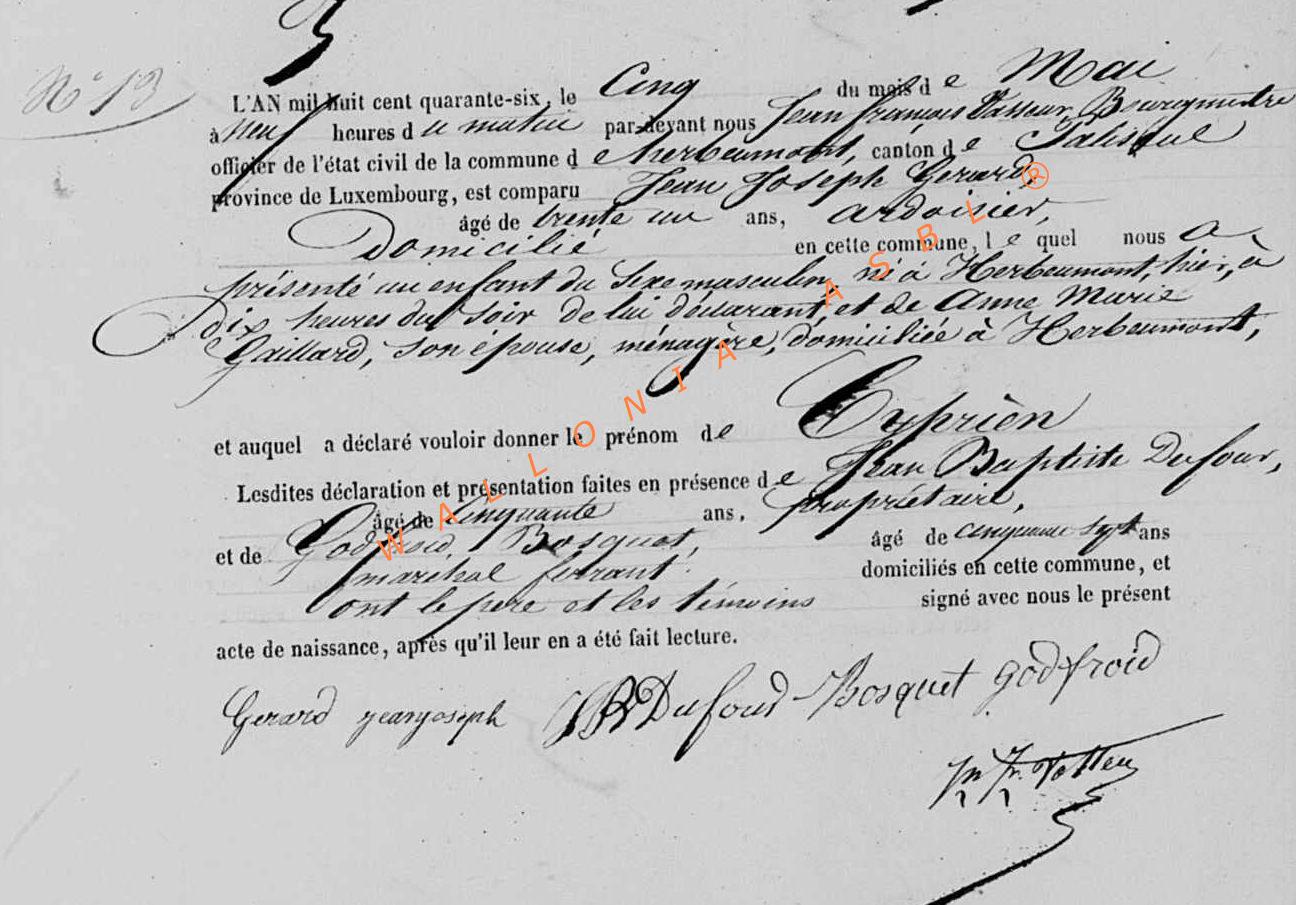 N° 13
L'AN mil huit cent quarante-six, le Cinq du mois de Mai
à neuf heures du matin par-devant nous Jean françois Bourgmestre
officier de l'état civil de la commune de herbeumont, canton de Paliseul
province de Luxembourg, est comparu Jean Joseph Gerard,
âgé de trente un ans, ardoisier,
Domicilié en cette commune, lequel nous a
présenté un enfant du sexe masculin, né à Herbeumont, hier, à
dix heures du soir de lui déclarant, et de Anne Marie
Gaillard, son épouse, ménagère, domiciliée à Herbeumont,
et auquel a déclaré vouloir donner le prénom de Cyprien
Lesdites déclaration et présentation faites en présence de Jean Baptiste Dufour,
âgé de cinquante ans, propriétaire,
et de Godfroid Bosquet, âgé de cinquante sept ans
maréchal ferrant. domiciliés en cette commune, et
ont le père et les témoins signé avec nous le présent
acte de naissance, après qu'il leur en a été fait lecture.
Gerard jeanjoseph JB Dufour Bosquet godfroid
WALLONIA ASBL ®